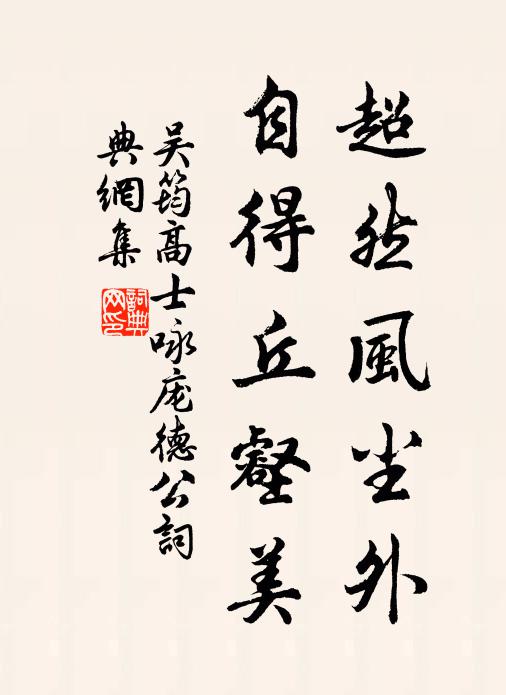 超然風尘外
自得丘壑美
吴筠高士咏庞德公詞
典網集
詞典網印